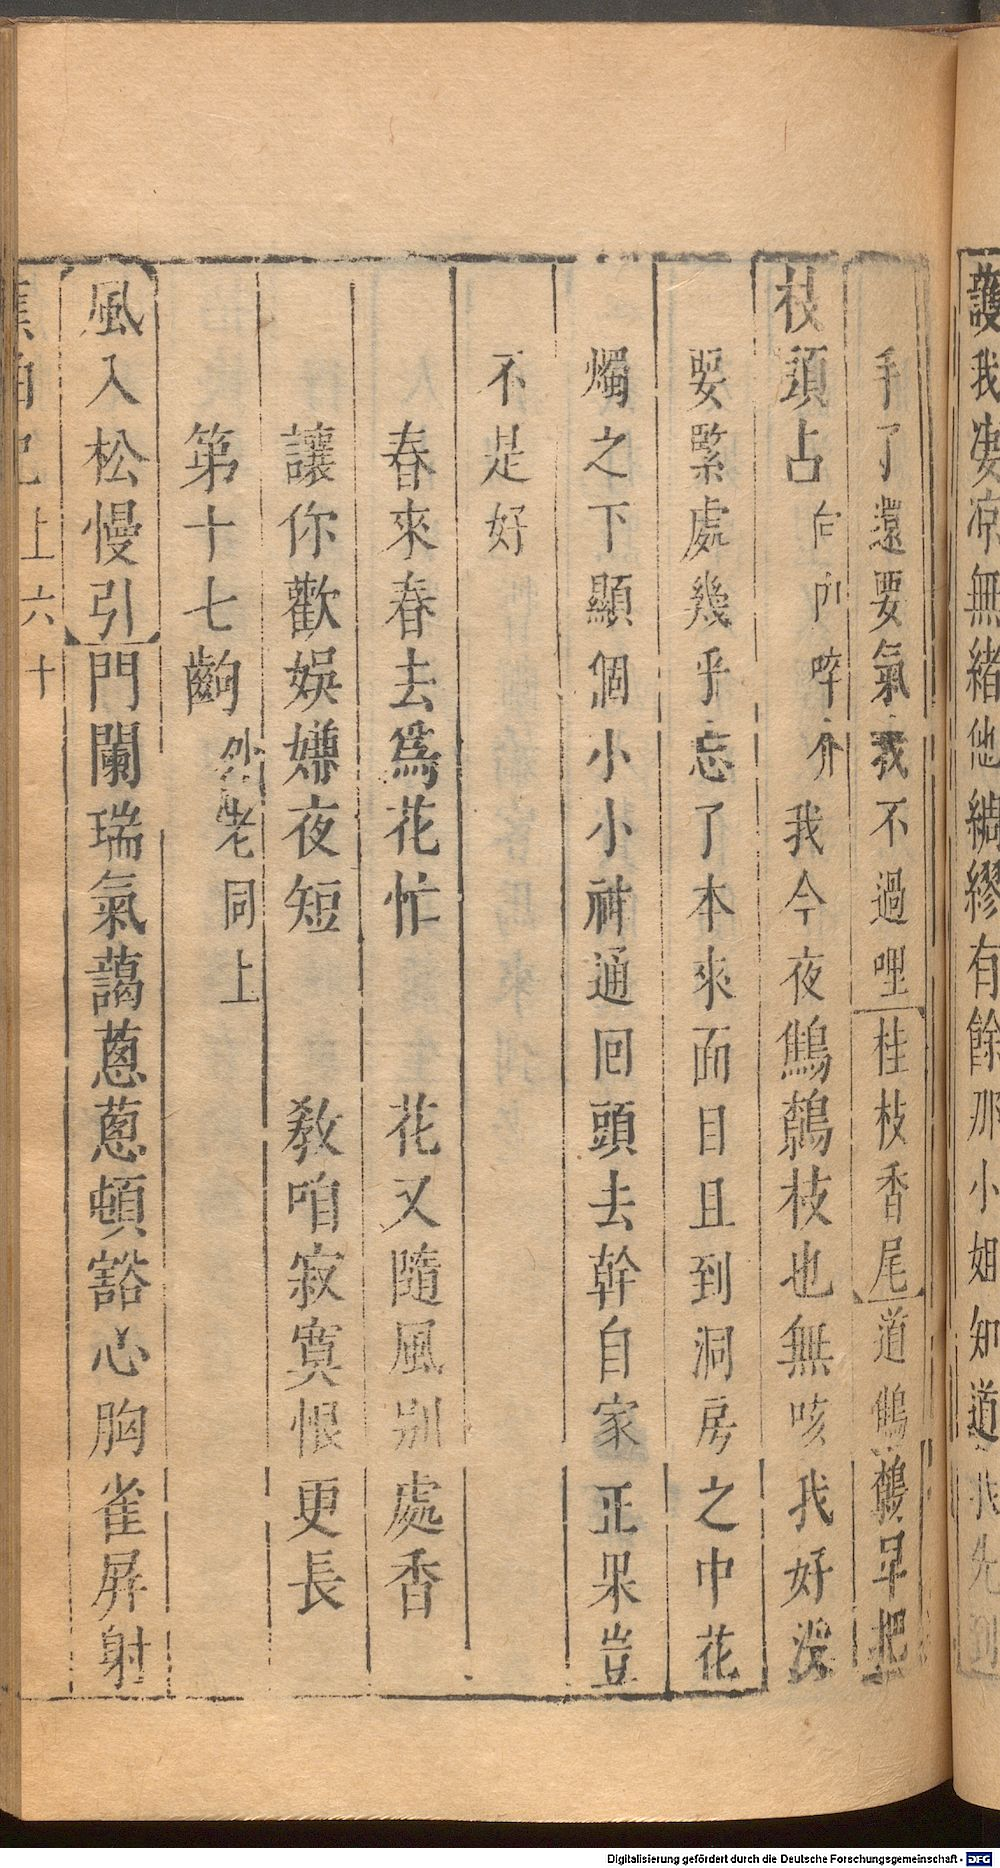 護我凄凉無緒他綢繆有餘那小姐知道我先到
手了還要氣我不過哩桂枝香尾道鷦鷯早把
枝頭占 内啐介我今夜鷦鷯枝也無咳我好沒
要緊處幾乎忘了本來面目且到洞房之中花
燭之下顯個小小神通回頭去幹自家正果豈
不是好
春來春去爲花忙 花又隨風别處香
讓你歡娛嫌夜短 教咱寂寞恨更長
第十七齣 外老同上
風入松慢引門闌瑞氣藹蔥蔥頓豁心胸雀屏射
蕉帕記上六十
Digitalisierung gefördert durch die Deutsche Forschungsgemeinschaft - DFG